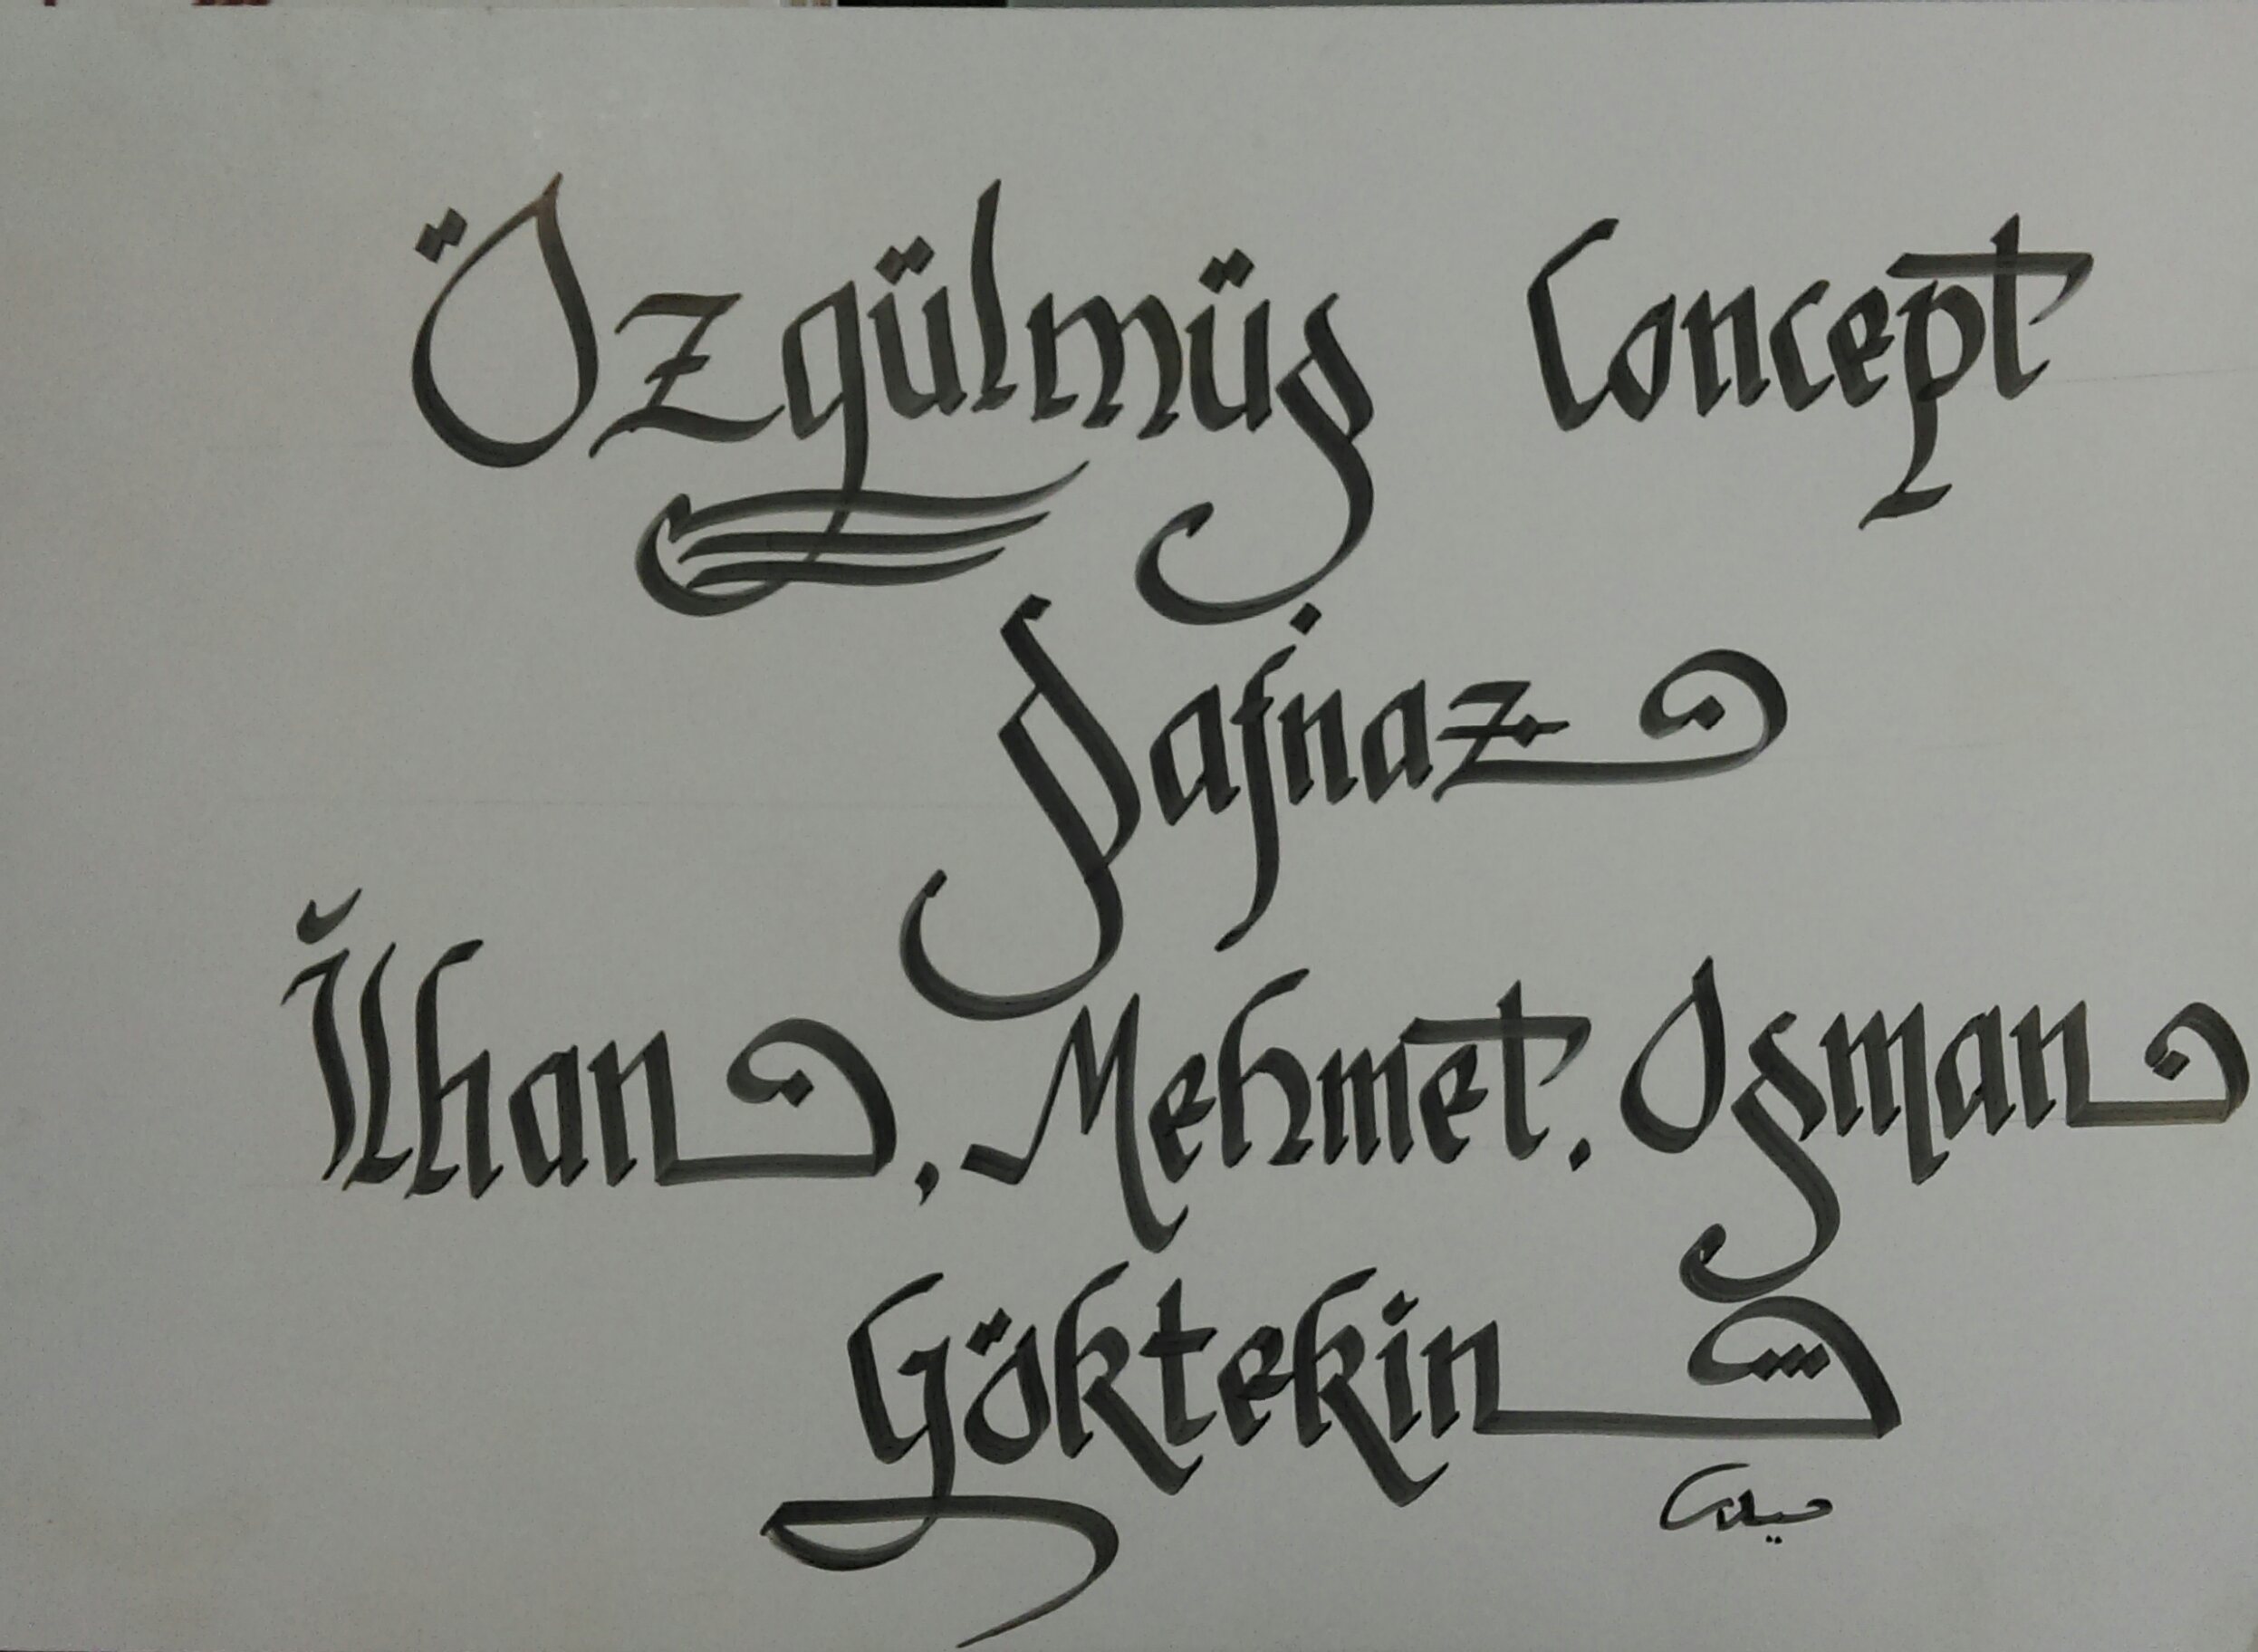 Özgülmüs Concept
Safinaz
İlhan, Mehmet. Osman
Göktekin